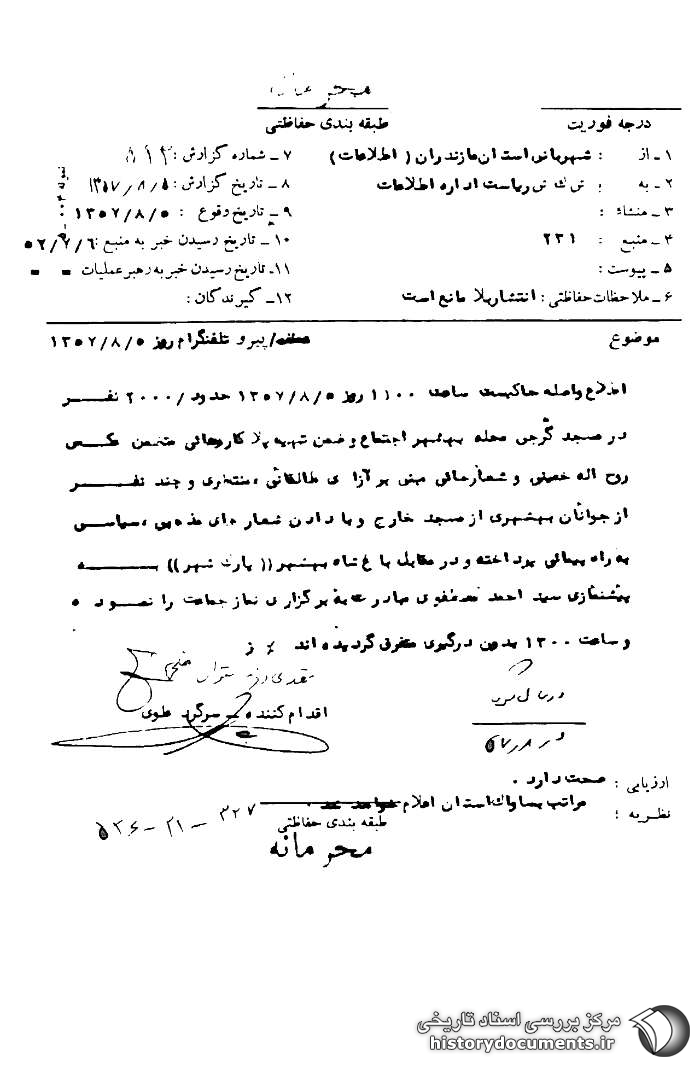 محرمانه
درجه فوریت
طبقه بندی حفاظتی
۱ـ از : شهربانی استان مازندران (اطلاعات)
۷ـ شماره گزارش :
۲ـ به : ش ک ش ریاست اداره اطلاعات
۸ـ تاریخ گزارش : ۱۳۵۷/۸/۵
۳ـ منشاء :
۹ـ تاریخ وقوع : ۱۳۵۷/۸/۵
۴ـ منبع : ۲۳۱
۱۰ـ تاریخ رسیدن خبر به منبع :
۵ـ پیوست :
۱۱ـ تاریخ رسیدن خبر به رهبر عملیات ـ ـ
۶ـ ملاحظات حفاظتی : انتشار بلا مانع است
۱۲ـ گیرندگان :
موضوع
/پیرو تلفنگرام روز ۱۳۵۷/۸/۵
اطلاع واصله حاکیست ساعت ۱۱۰۰ روز ۱۳۵۷/۸/۵ حدود /۲۰۰۰ نفر
در مسجد گرجی محله بهشهر اجتماع و ضمن تهیه پلاکاردهائی متضمن عکس
روح اله خمینی و شعارهائی مبنی بر آزادی طالقانی ، منتظری و چند نفر
از جوانان بهشهری از مسجد خارج و با دادن شعارهای مذهبی ، سیاسی
به راه پیمائی پرداخته و در مقابل باغ شاه بهشهر (( پارک شهر )) به
پیشنمازی سید احمد مصطفوی مبادرت به برگزاری نماز جماعت را نمود ه
و ساعت ۱۳۰۰ بدون درگیری متفرق گردیده اند
اقدام کننده ـ سرگرد علوی
ارزیابی : صحت دارد .
نظریه : مراتب بساواک استان اعلام
طبقه بندی حفاظتی
۳۲۷ - ۲۱ - ۵۳۶
محرمانه
مرکز بررسی اسناد تاریخی
historydocuments.ir